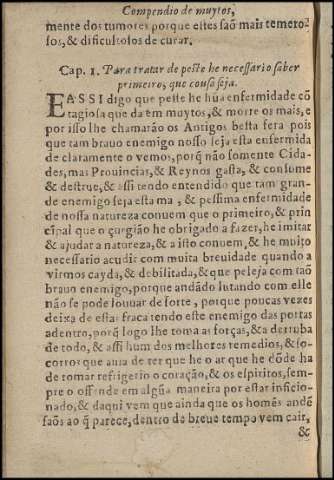 Compendio de muytos,
mente dos tumores porque estes saõ mais temero-
sos, & dificultosos de curar.
Cap. 1. Para tratar de peste he necessario saber
primeiro, que cousa seja.
E ASSI digo que peste he hũa enfermidade cõ
tagiosa que da em muytos, & morre os mais, e
por isso lhe chamarão os Antigos besta fera pois
que tam brauo enemigo nosso seja esta enfermida
de claramente o vemos, porq̃ não somente Cida-
des, mas Prouincias, & Reynos gasta, & consume
& destrue, & assi tendo entendido que tam gran-
de enemigo seja esta ma, & pessima enfermidade
de nossa natureza conuem que o primeiro, & prin
cipal que o çurgião he obrigado a fazer, he imitar
& ajudar a natureza, & a isto conuem, & he muito
necessario acudir com muita breuidade quando a
virmos cayda, & debilitada, & que peleja com taõ
brauo enemigo, porque andãdo lutando com elle
não se pode louuar de forte, porque poucas vezes
deixa de estar fraca tendo este enemigo das portas
adentro, porq̃ logo lhe toma as forças, & a derruba
de todo, & assi hum dos melhores remedios, & so-
corros que aura de ter que he o ar que he dõde ha
de tomar refrigerio o coração, & os espiritos, sem-
pre o offende em algũa maneira por estar inficio-
nado, & daqui vem que ainda que os homẽs andẽ
saõs ao q̃ parece, dentro de breue tempo vem cair,
&